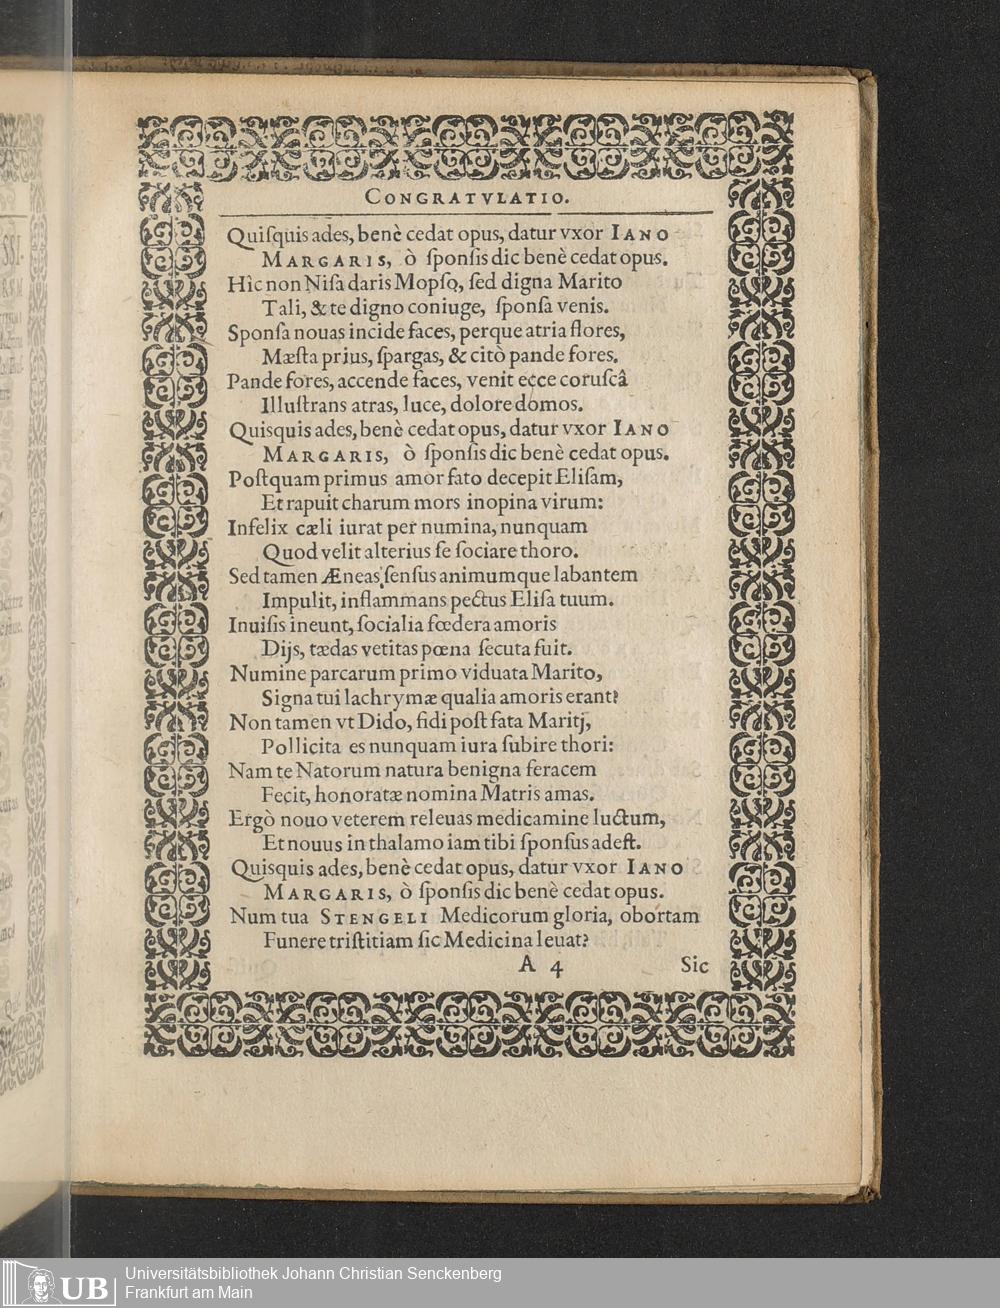 CONGRATVLATIO.
Quiſquis ades, benè cedat opus, datur vxor IANO
MARGARIS, ò ſponſis dic benè cedat opus.
Hîc non Niſa daris Mopſo, ſed digna Marito
Tali, & te digno coniuge, ſponſa venis.
Sponſa nouas incide faces, perque atria flores,
Mæſta prius, ſpargas, & citò pande fores.
Pande fores, accende faces, venit ecce coruſcâ
Illuſtrans atras, luce, dolore domos.
Quisquis ades, benè cedat opus, datur vxor IANO
MARGARIS, ò ſponſis dic benè cedat opus.
Poſtquam primus amor fato decepit Eliſam,
Et rapuit charum mors inopina virum:
Infelix cæli iurat per numina, nunquam
Quod velit alterius ſe ſociare thoro.
Sed tamen Æneas ſenſus animumque labantem
Impulit, inflammans pectus Eliſa tuum.
Inuiſis ineunt, ſocialia fœdera amoris
Dijs, tædas vetitas pœna ſecuta fuit.
Numine parcarum primo viduata Marito,
Signa tui lachrymæ qualia amoris erant?
Non tamen vt Dido, fidi poſt fata Maritj,
Pollicita es nunquam iura ſubire thori:
Nam te Natorum natura benigna feracem
Fecit, honoratæ nomina Matris amas.
Ergò nouo veterem releuas medicamine luctum,
Et nouus in thalamo iam tibi ſponſus adeſt.
Quisquis ades, benè cedat opus, datur vxor IANO
MARGARIS, ò ſponſis dic benè cedat opus.
Num tua STENGELI Medicorum gloria, obortam
Funere triſtitiam ſic Medicina leuat?
A 4 Sic
UB
Universitätsbibliothek Johann Christian Senckenberg
Frankfurt am Main